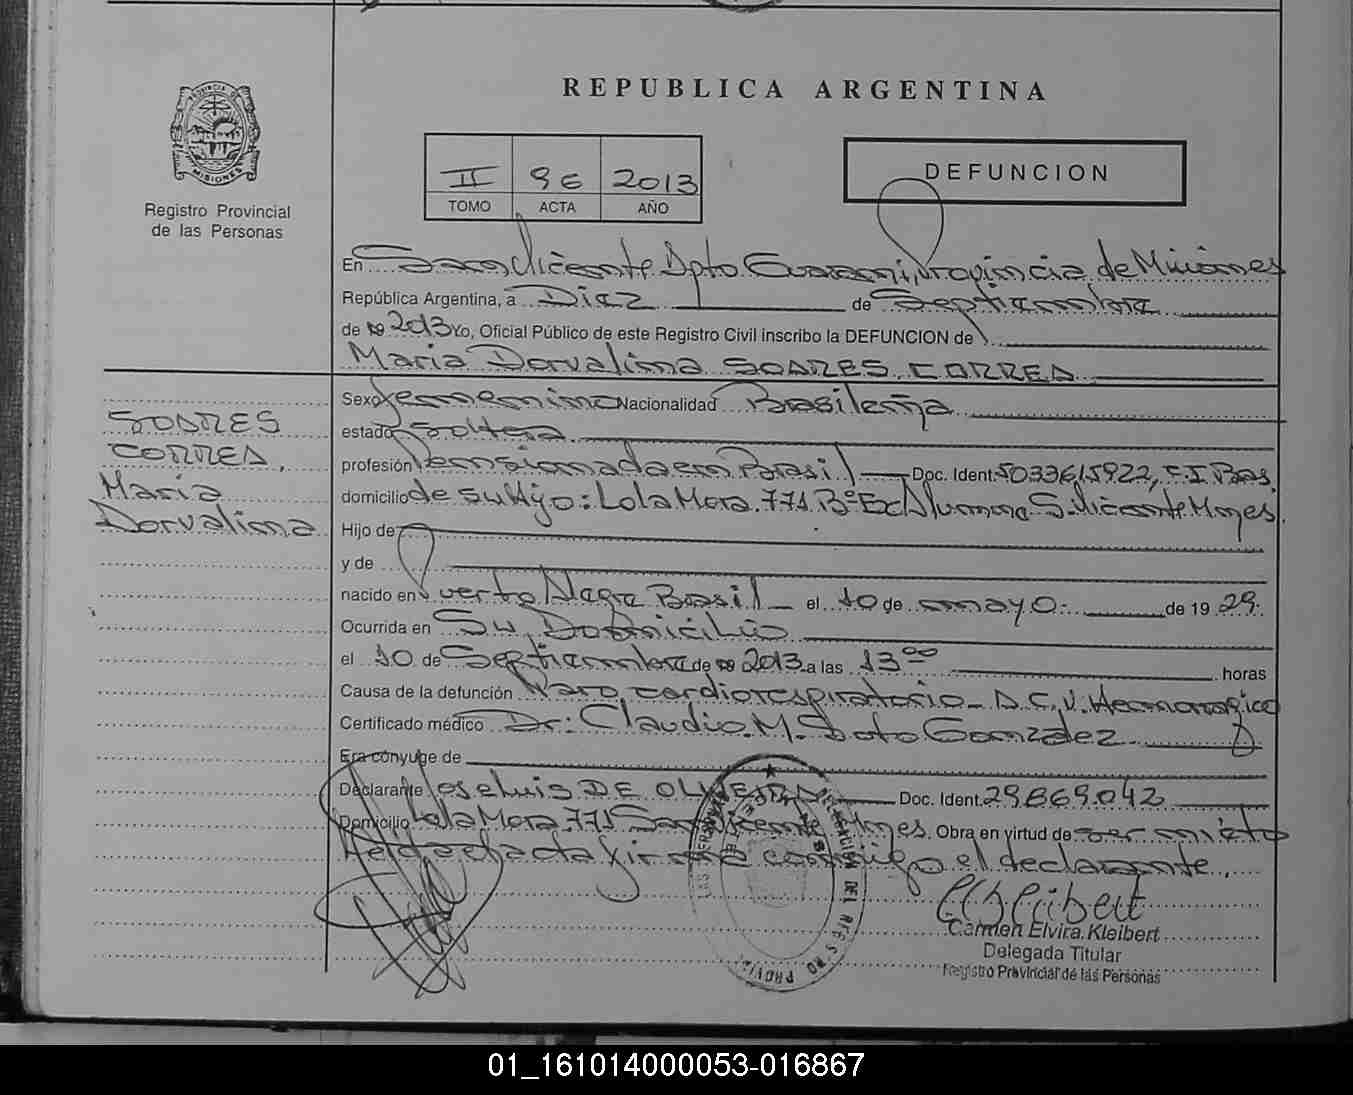 REPUBLICA ARGENTINA
PROVINCIA DE
MISIONES
Registro Provincial
de las Personas
II 96 2013
TOMO ACTA AÑO
DEFUNCION
En San Vicente Dpto Guarani, Provincia de Misiones
República Argentina, a Diez de Septiembre
de 2013 Yo, Oficial Público de este Registro Civil inscribo la DEFUNCION de
Maria Dorvalina SOARES CORREA
SOARES
CORREA,
Maria
Dorvalina
Sexo femenino Nacionalidad Brasileña
estado Soltera
profesión Pensionada en Brasil Doc. Ident. 5033615922, C.I Bras.
domicilio de su Hijo: Lola Mora 771 Bº S. Vicente Mnes.
Hijo de
y de
nacido en Puerto Alegre Brasil el 10 de mayo de 19 29
Ocurrida en Su Domicilio
el 10 de Septiembre de 2013 a las 13 00 horas
Causa de la defunción Paro cardiorespiratorio - A.C.V. Hemorragico
Certificado médico Dr: Claudio M. Soto Gonzalez
Era cónyuge de
Declarante Jose Luis DE OLIVEIRA Doc. Ident. 29.869.042
Domicilio Lola Mora 771 San Vicente Mnes. Obra en virtud de ser nieto
de la firma conmigo el declarante.
Carmen Elvira Kleibert
Delegada Titular
Registro Provincial de las Personas
01_161014000053-016867